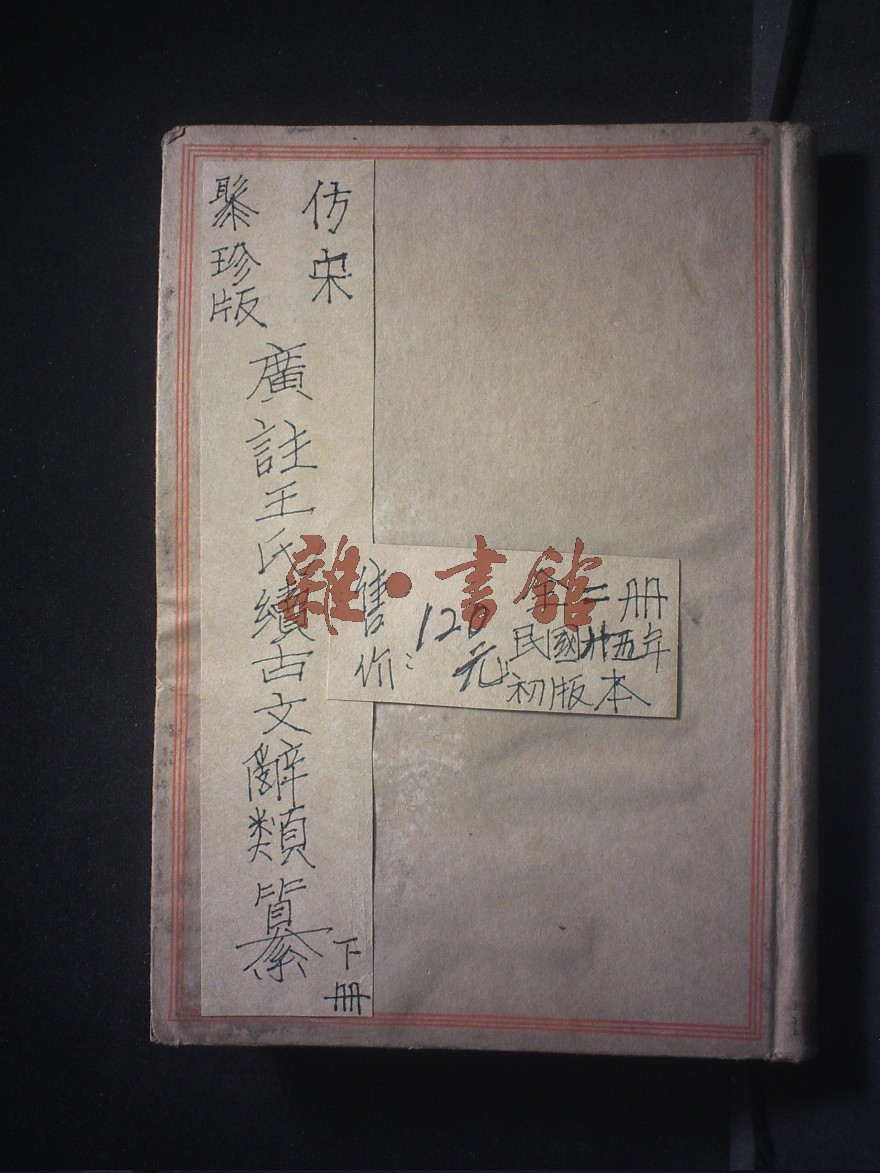 仿宋
聚珍版
廣註王氏續古文辭類纂
下册
全二册
民國廿五年
初版本
售价：
120元
雜·書館